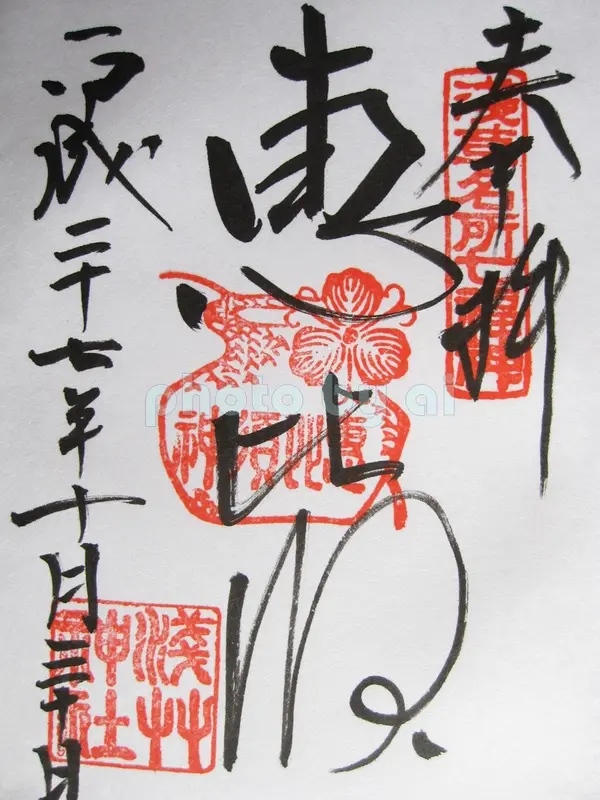 奉拝
浅草名所七福神
恵比須
恵比須神
平成二十七年十月三十日
淺艸神社
photo by ai